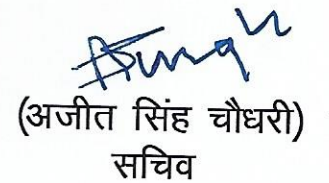 (अजीत सिंह चौधरी)
सचिव